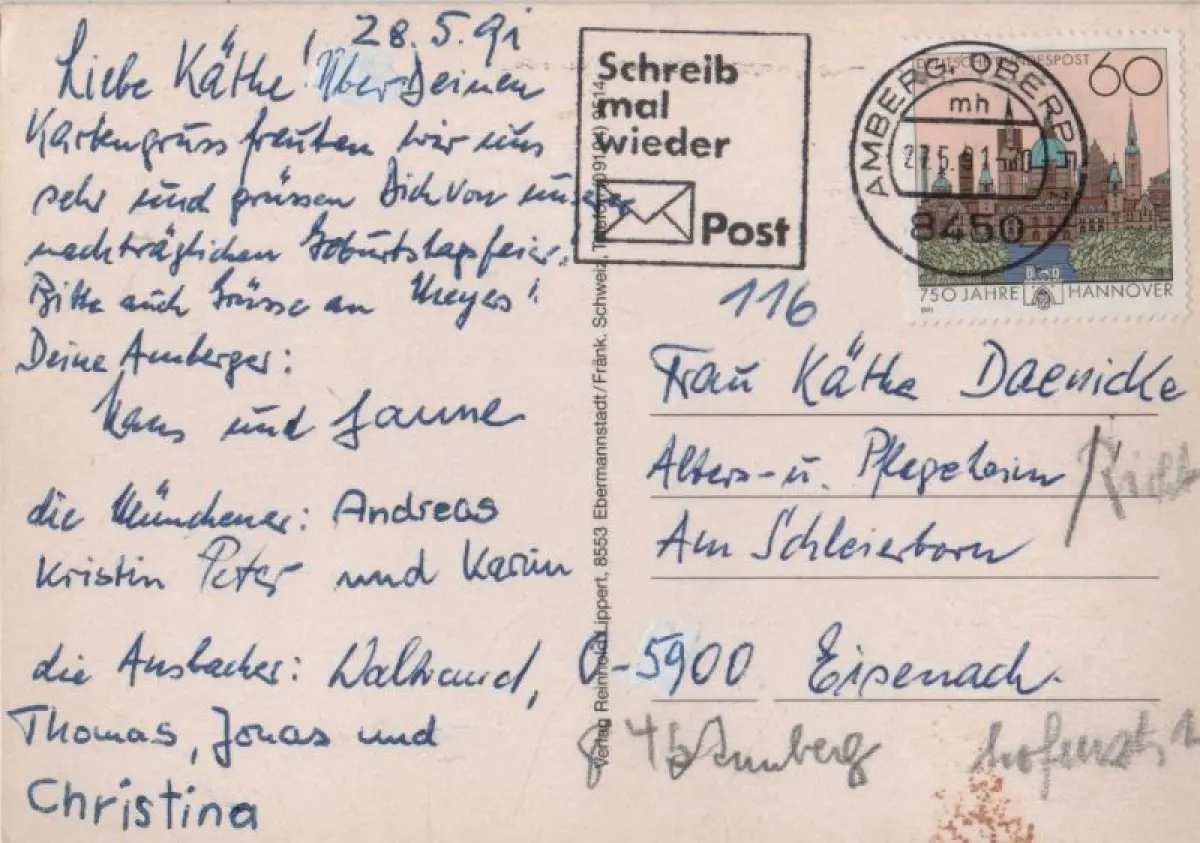 28.5.91
Liebe Käthe! Über Deinen
Kartengruss freuten wir uns
sehr und grüssen Dich von unserer
nachträglichen Geburtstagsfeier.
Bitte auch Grüsse an Meyes!
Deine Amberger:
Hans und Hanne
die Münchener: Andreas
Kristin Peter und Karin
die Ansbacher: Waltraud,
Thomas, Jonas und
Christina
Schreib
mal
wieder
Post
AMBERG, OBERPF
mh
27.5.91
8450
DEUTSCHE BUNDESPOST 60
750 JAHRE HANNOVER
116
Frau Käthe Daenicke
Alters- u. Pflegeheim
Am Schleierborn
O-5900 Eisenach.
Amberg
Verlag Reinhold Lippert, 8553 Ebermannstadt/Fränk. Schweiz, Telefon